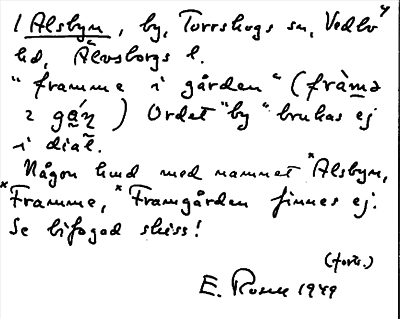 1 Alsbyn, by, Torrskogs sn, Vedbo
hd, Älvsborgs l.
"framme i gården" (fràmə
i gáṇ) Ordet "by" brukas ej
i dial.
Någon hmd med namnet *Alsbyn,
*Framme, *Framgården finnes ej.
Se bifogad skiss!
(forts.)
E. Rosell 1949